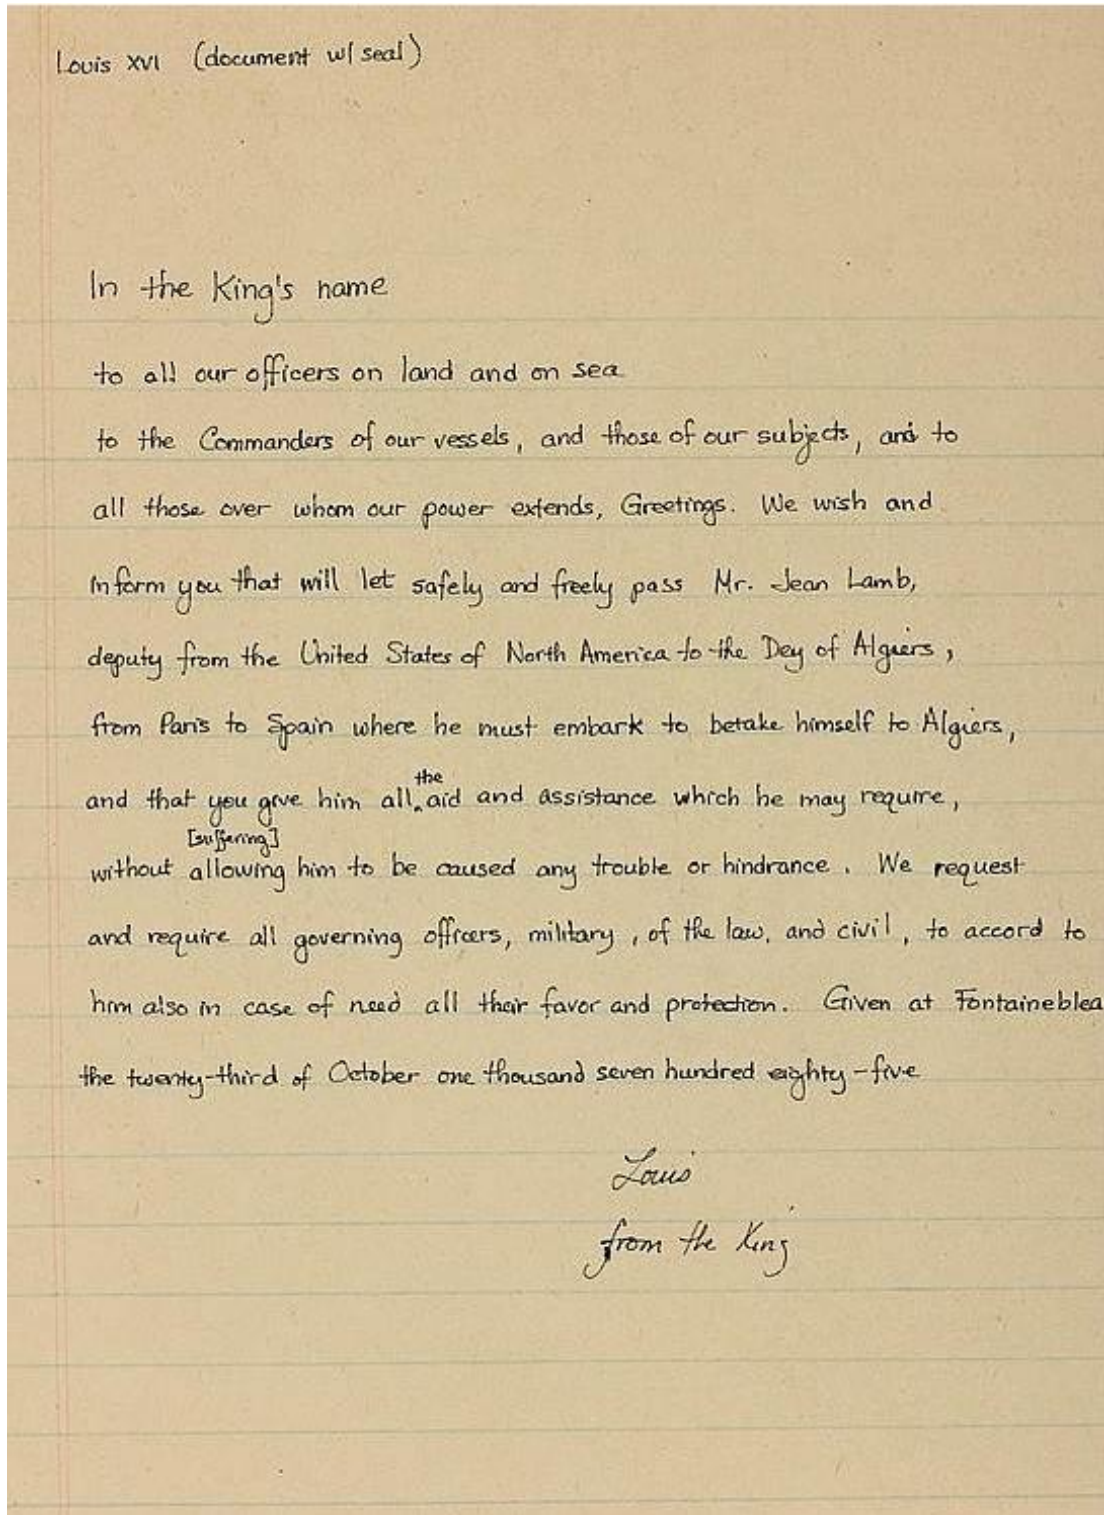 Louis XVI (document w/ seal)
In the King's name
to all our officers on land and on sea
to the Commanders of our vessels, and those of our subjects, and to
all those over whom our power extends, Greetings. We wish and
inform you that will let safely and freely pass Mr. Jean Lamb,
deputy from the United States of North America to the Dey of Algiers,
from Paris to Spain where he must embark to betake himself to Algiers,
the
and that you give him all aid and assistance which he may require,
[suffering]
without allowing him to be caused any trouble or hindrance. We request
and require all governing officers, military, of the law, and civil, to accord to
him also in case of need all their favor and protection. Given at Fontaineblea
the twenty-third of October one thousand seven hundred eighty-five
Louis
from the King